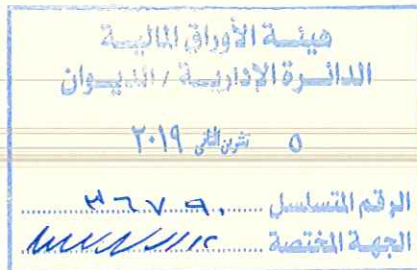 هيئة الأوراق المالية
الدائرة الإدارية / الديوان
٥ تشرين الثاني ٢٠١٩
الرقم المتسلسل
الجهة المختصة